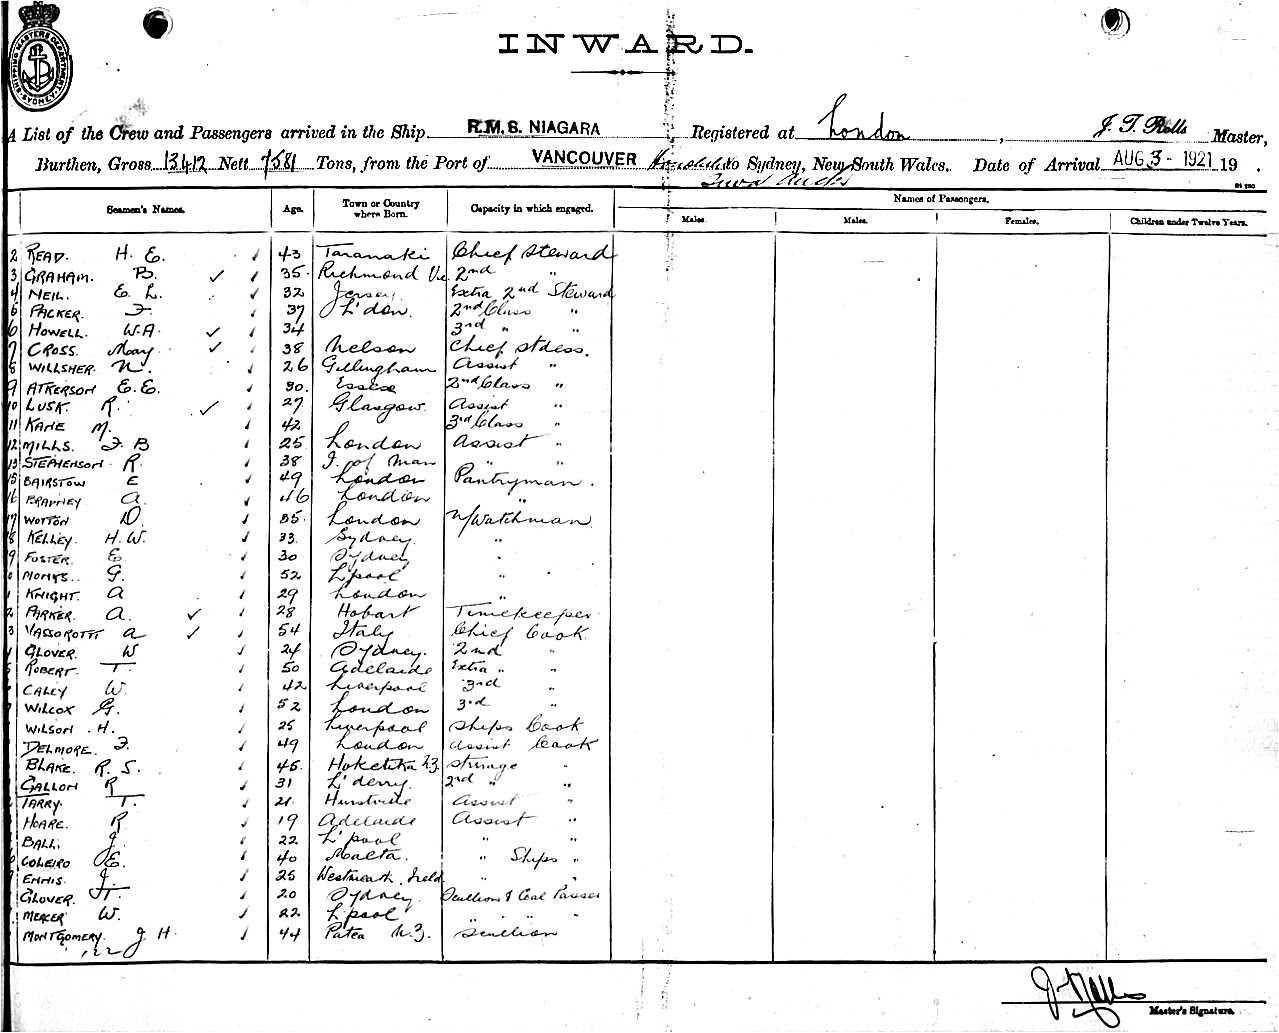 SHIPPING MASTERS DEPARTMENT SYDNEY
INWARD.
A List of the Crew and Passengers arrived in the Ship R.M.S. NIAGARA, Registered at London, J. T. Rolls Master,
Burthen, Gross 13412 Nett 7581 Tons, from the Port of VANCOUVER Honolulu to Sydney, New South Wales. Date of Arrival AUG 3 - 1921 19 .
Seamen's Names. Age. Town or Country where Born. Capacity in which engaged. Names of Passengers.
Males. Males. Females. Children under Twelve Years.
2 READ. H. E. 43 Taranaki Chief Steward
3 GRAHAM. B. ✓ 35. Richmond Vic. 2nd "
4 NEIL. E. L. 32 Jersey. Extra 2nd Steward
5 PACKER. F. 37 L'don. 2nd Class "
6 HOWELL. W.A ✓ 34 3rd " "
7 CROSS. May ✓ 38 Nelson Chief Stdess.
8 WILLSHER N. 26 Gillingham Assist "
9 ATKERSON E.E. 30. Essex 2nd Class "
10 LUSK. R. ✓ 27 Glasgow. Assist "
11 KANE M. 42 3rd Class "
12 MILLS. F. B 25 London Assist "
13 STEPHENSON R. 38 I. of Man " "
15 BAIRSTOW E 49 London Pantryman.
16 A. 46 London "
17 WOTTON D. 35. London N/Watchman
8 KELLEY. H.W. 33. Sydney. "
9 FOSTER. E 30 Sydney "
0 MONKS. G. 52 L'pool "
1 KNIGHT. A 29 London "
2 PARKER. A. ✓ 28 Hobart Timekeeper
3 VASSOROTTI A ✓ 54 Italy Chief Cook
GLOVER. W 24 Sydney. 2nd "
5 ROBERT. T. 50 Adelaide Extra " "
CALEY W. 42 Liverpool 3rd "
WILCOX G. 52 London 3rd "
WILSON. H. 25 Liverpool Ships Cook
DELMORE. F. 49 London Assist Cook
BLAKE. R. S. 45. Hoketika N.Z. Steerage "
GALLON R 31 L'derry. 2nd " "
TARRY. T. 21. Hurstville Assist "
HOARE. R 19 Adelaide Assist "
BALL. J. 22 L'pool " "
COLEIRO E. 40 Malta. " Ships "
ENNIS. J. 25 Westmeath. Ireld " "
GLOVER. 20 Sydney. Scullion & Coal Passer
MERCER W. 22 L'pool " " "
MONTGOMERY. J. H. 44 Patea N.Z. Scullion
Master's Signature.